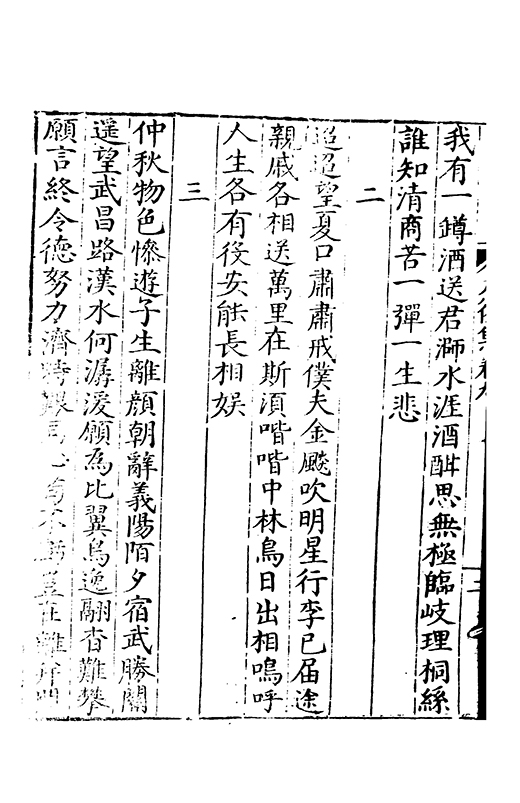 我有一罇酒送君浉水涯酒酣思無極臨岐理桐絲
誰知清商苦一彈一生悲
二
迢迢望夏口肅肅戒僕夫金飈吹明星行李已届途
親戚各相送萬里在斯須喈喈中林鳥日出相鳴呼
人生各有役安能長相娱
三
仲秋物色慘遊子生離顔朝辭義陽陌夕宿武勝關
遥望武昌路漢水何潺湲願為比翼鳥逸翮杳難攀
願言終令德努力濟時艱心不在離